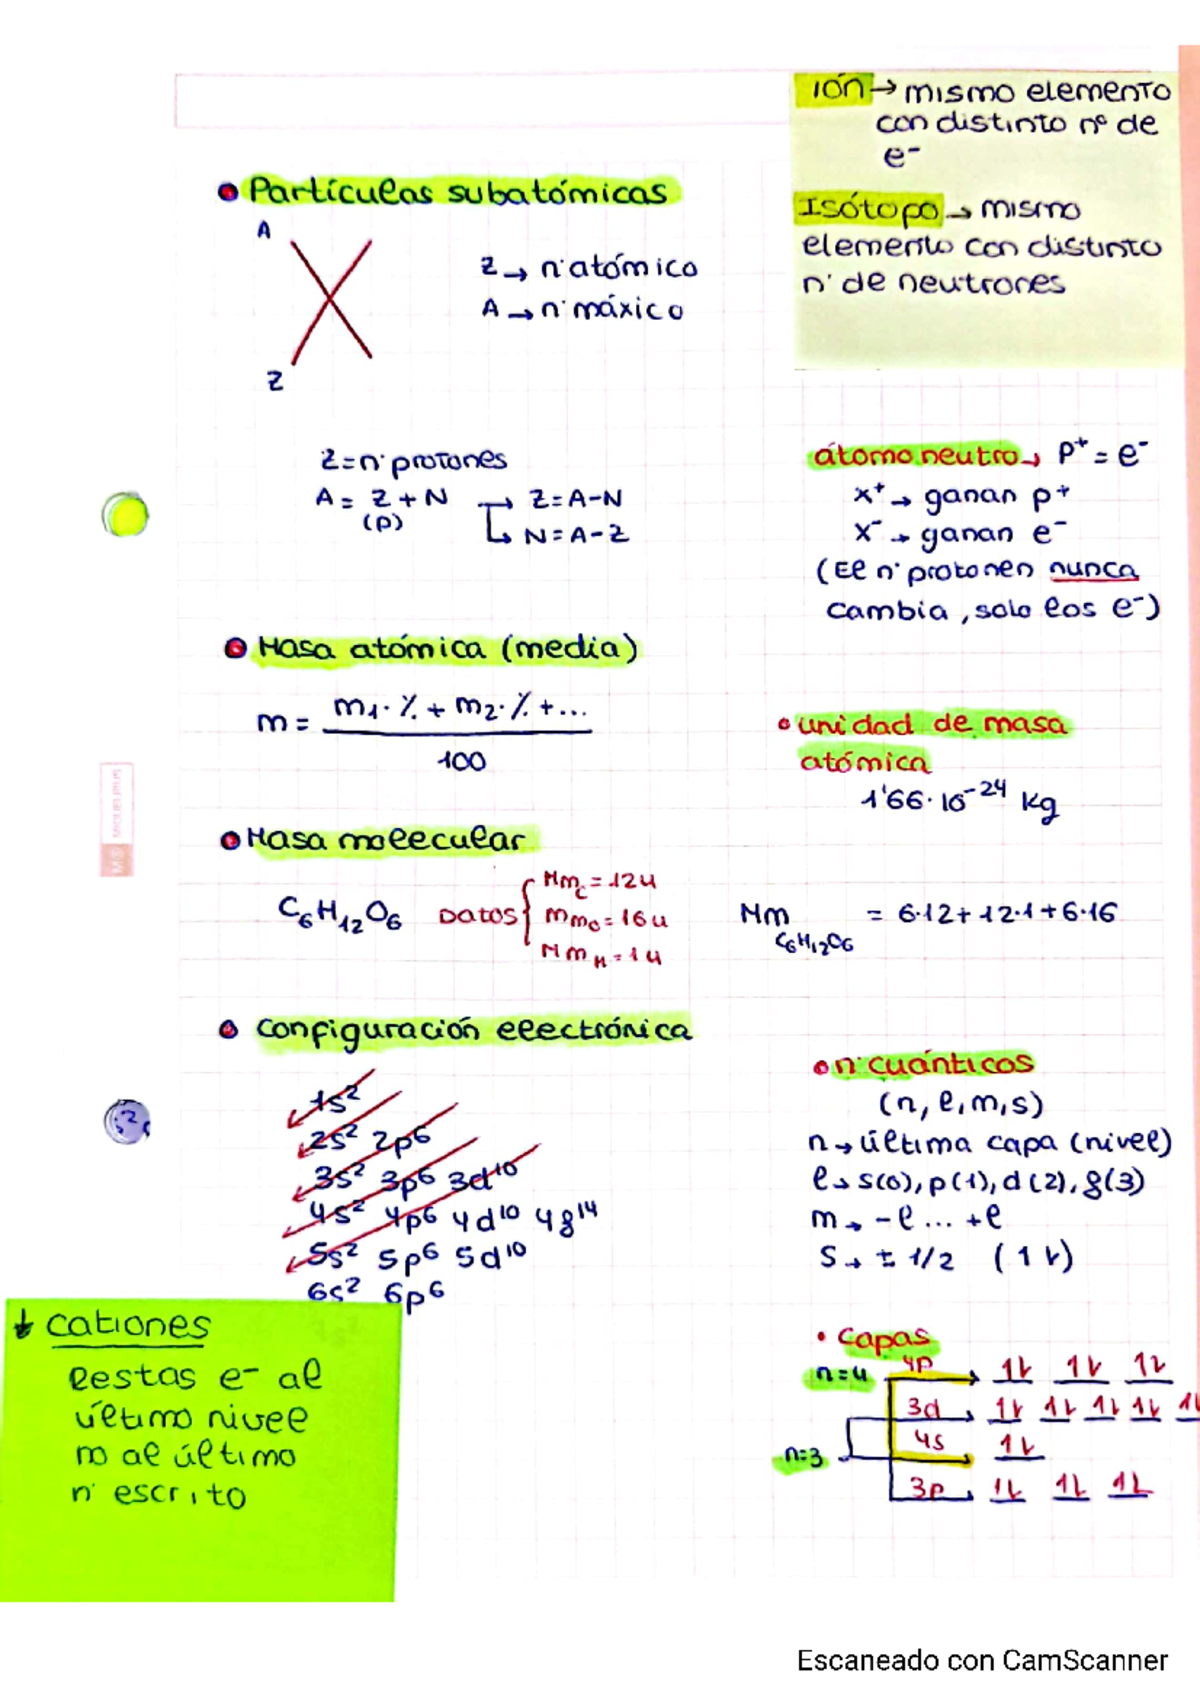 IÓN → mismo elemento
con distinto nº de
e⁻
Isótopo → mismo
elemento con distinto
n· de neutrones
• Partículas subatómicas
A
X
Z
Z → n· atómico
A → n· máxico
Z = n· protones
A = Z + N → Z = A - N
(p) ↳ N = A - Z
átomo neutro → p⁺ = e⁻
x⁺ → ganan p⁺
x⁻ → ganan e⁻
(El n· protonen nunca
cambia, solo los e⁻)
• Masa atómica (media)
m = m₁· % + m₂· % + ...
100
• unidad de masa
atómica
1'66 · 10⁻²⁴ kg
• Masa molecular
C₆H₁₂O₆ DATOS { Mm_C = 12u
mm_O = 16u
Mm_H = 1u
Mm C₆H₁₂O₆ = 6·12 + 12·1 + 6·16
• Configuración electrónica
1s²
2s² 2p⁶
3s² 3p⁶ 3d¹⁰
4s² 4p⁶ 4d¹⁰ 4f¹⁴
5s² 5p⁶ 5d¹⁰
6s² 6p⁶
• n· cuánticos
(n, l, m, s)
n → última capa (nivel)
l → s(0), p(1), d(2), f(3)
m → -l ... +l
s → ± 1/2 (↿⇂)
↓ Cationes
Restas e⁻ al
último nivel
no al último
n· escrito
• Capas
n=4 4p → ↿⇂ ↿⇂ ↿⇂
3d → ↿⇂ ↿⇂ ↿⇂ ↿⇂ ↿⇂
4s → ↿⇂
n=3
3p → ↿⇂ ↿⇂ ↿⇂
Escaneado con CamScanner